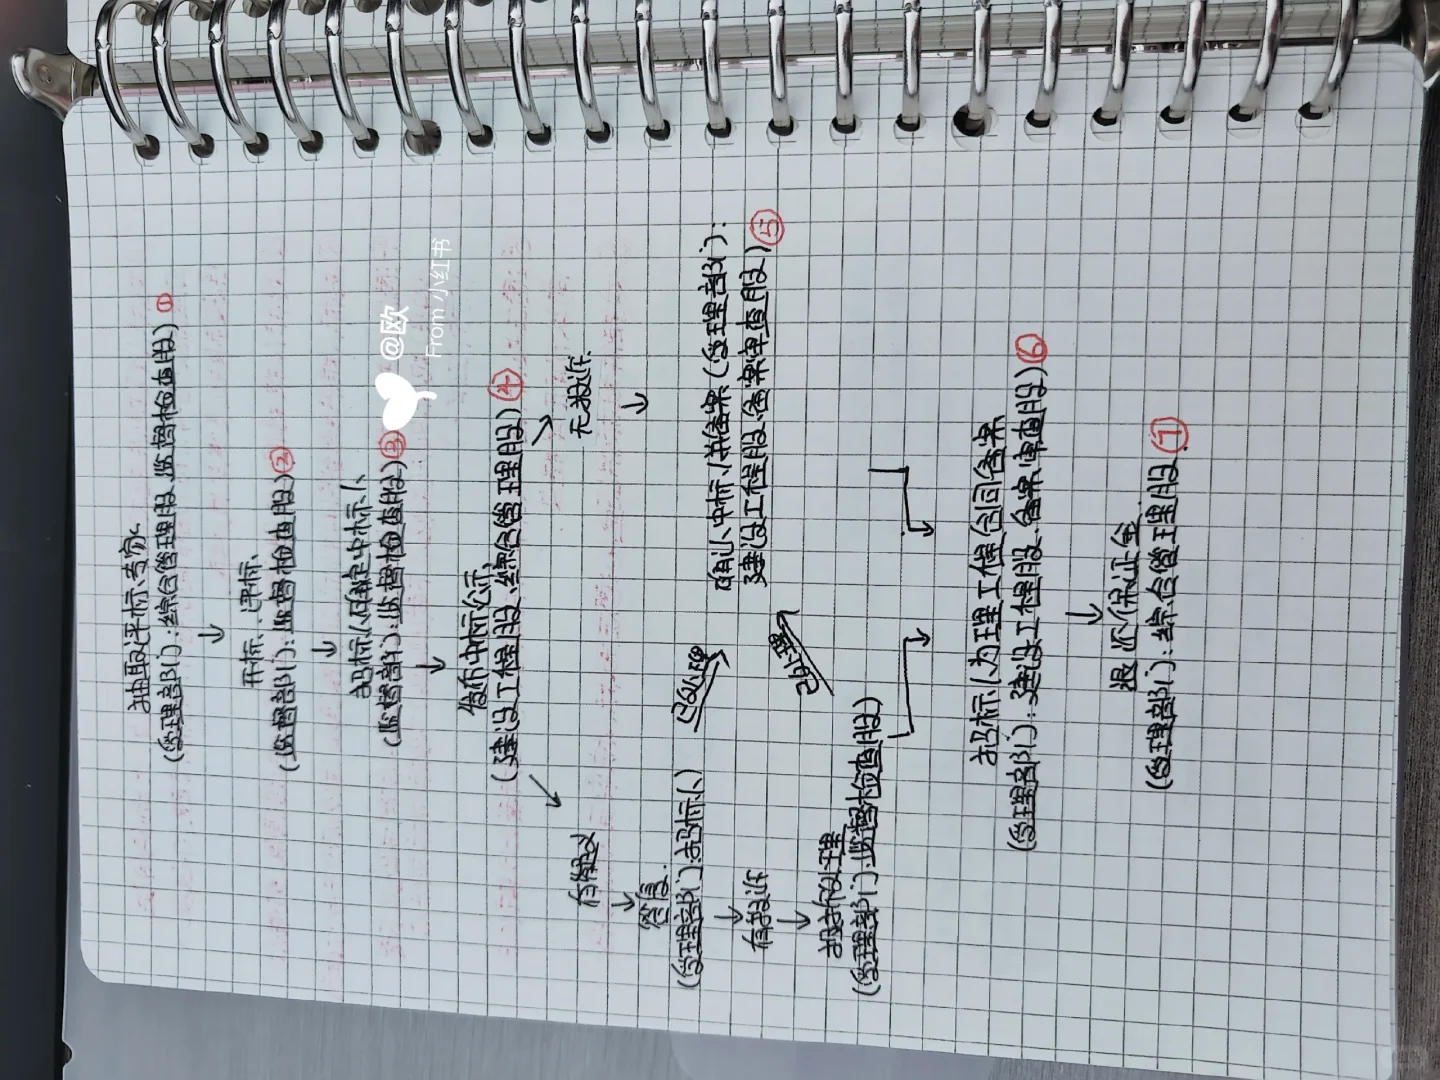 抽取评标专家
(受理部门:综合管理股、监督检查股) ①
↓
开标、评标
(监督部门:监督检查股) ②
↓
招标人确定中标人
(监督部门:监督检查股) ③
↓
发布中标公示
(建设工程股、综合管理股) ④
有疑义
无投诉.
↓
↓
答复.
(受理部门:招标人)
已处理
确认中标人并备案(受理部门:
建设工程股、备案审查股) ⑤
↓
有投诉
已处理
↓
投诉处理
(受理部门:监督检查股)
招标人办理工程合同备案
(受理部门:建设工程股、备案审查股) ⑥
↓
退还保证金
(受理部门:综合管理股) ⑦
@欧
From 小红书